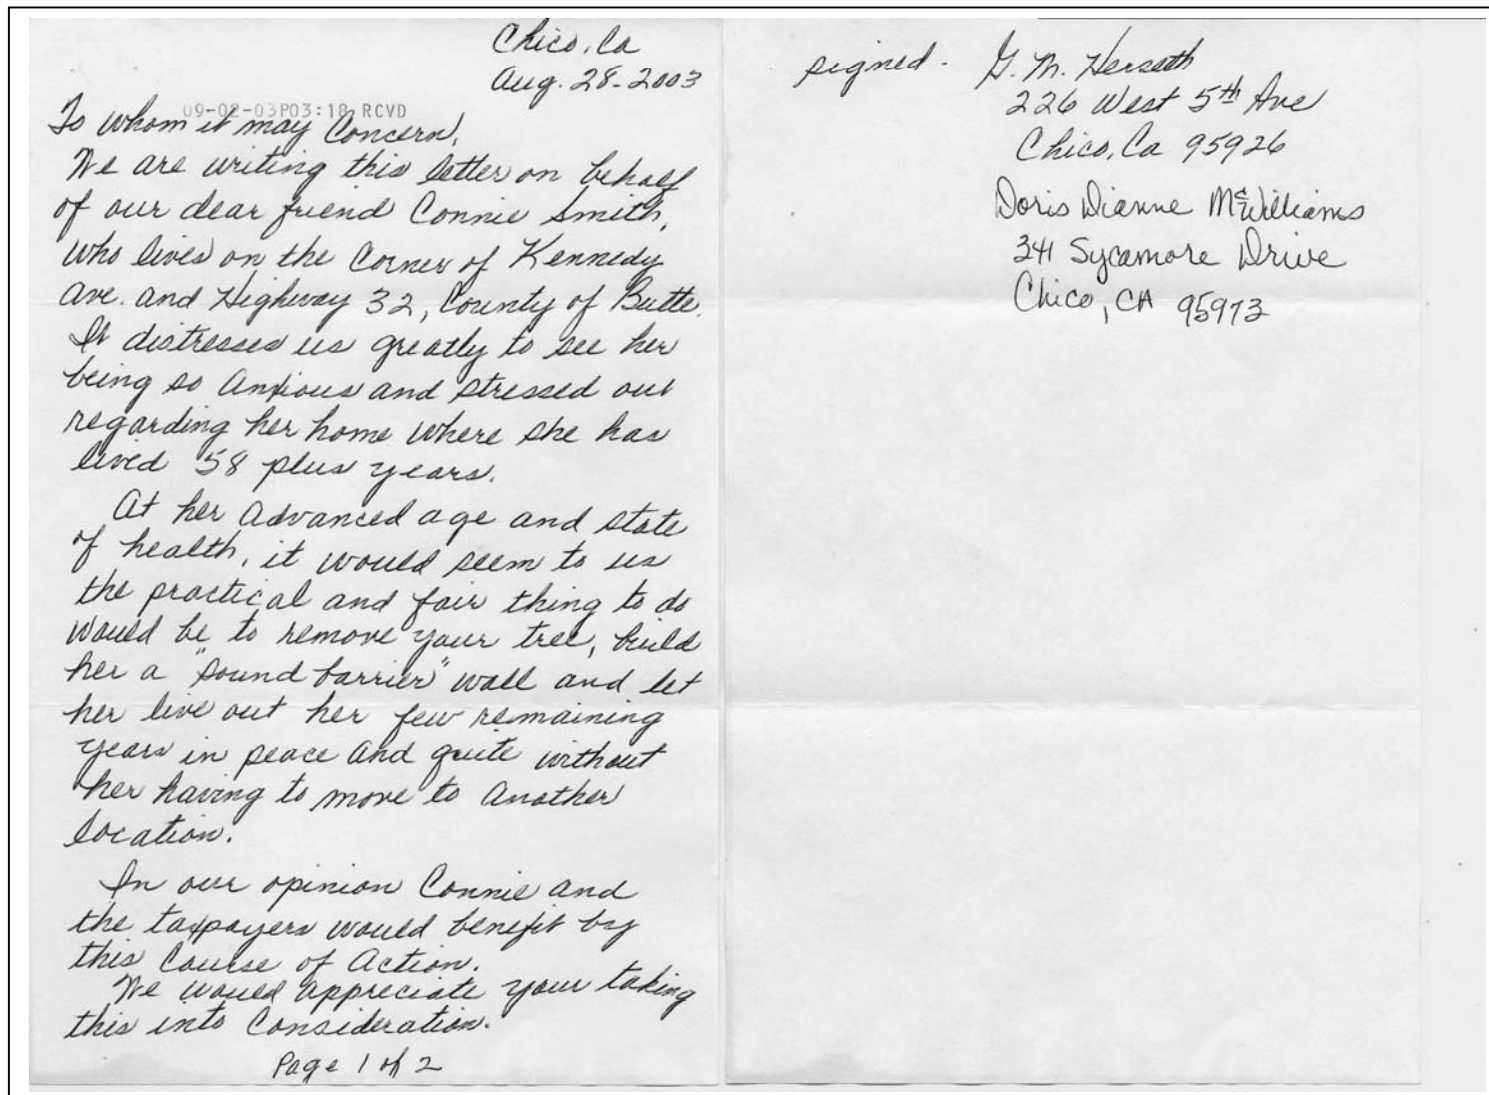 Chico, Ca
Aug. 28-2003
09-02-03P03:18 RCVD
To whom it may Concern,
We are writing this letter on behalf
of our dear friend Connie Smith,
who lives on the Corner of Kennedy
Ave. and Highway 32, County of Butte.
It distresses us greatly to see her
being so Anxious and stressed out
regarding her home where she has
lived 58 plus years.
At her advanced age and state
of health, it would seem to us
the practical and fair thing to do
would be to remove your tree, build
her a "sound barrier" wall and let
her live out her few remaining
years in peace and quite without
her having to move to another
location.
In our opinion Connie and
the taxpayers would benefit by
this Course of Action.
We would appreciate your taking
this into Consideration.
Page 1 of 2
signed - G. M. Herseth
226 West 5th Ave
Chico, Ca 95926
Doris Dianne McWilliams
341 Sycamore Drive
Chico, CA 95973